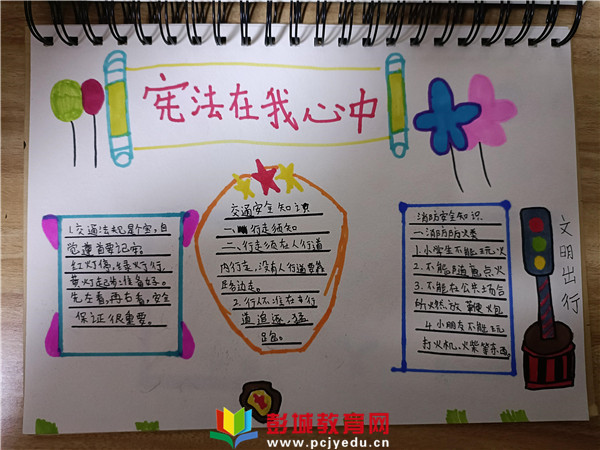 宪法在我心中
1.交通法规是个宝,自
觉遵首要记牢。
红灯停,绿灯行,
黄灯起步准备好。
先左看,再右看,安全
保证很重要。
交通安全知识
一、行走须知
二、行走须在人行道
内行走,没有人行道要靠
路边走。
2.行人不准在车行
道追逐,猛
跑。
消防安全知识
一消防防火类
1.小学生不能玩火
2.不能随意点火
3.不能在公共场合
燃放鞭火包
4小朋友不能玩
打火机、火柴等东西
文明出行
彭城教育网
www.pcjyedu.cn